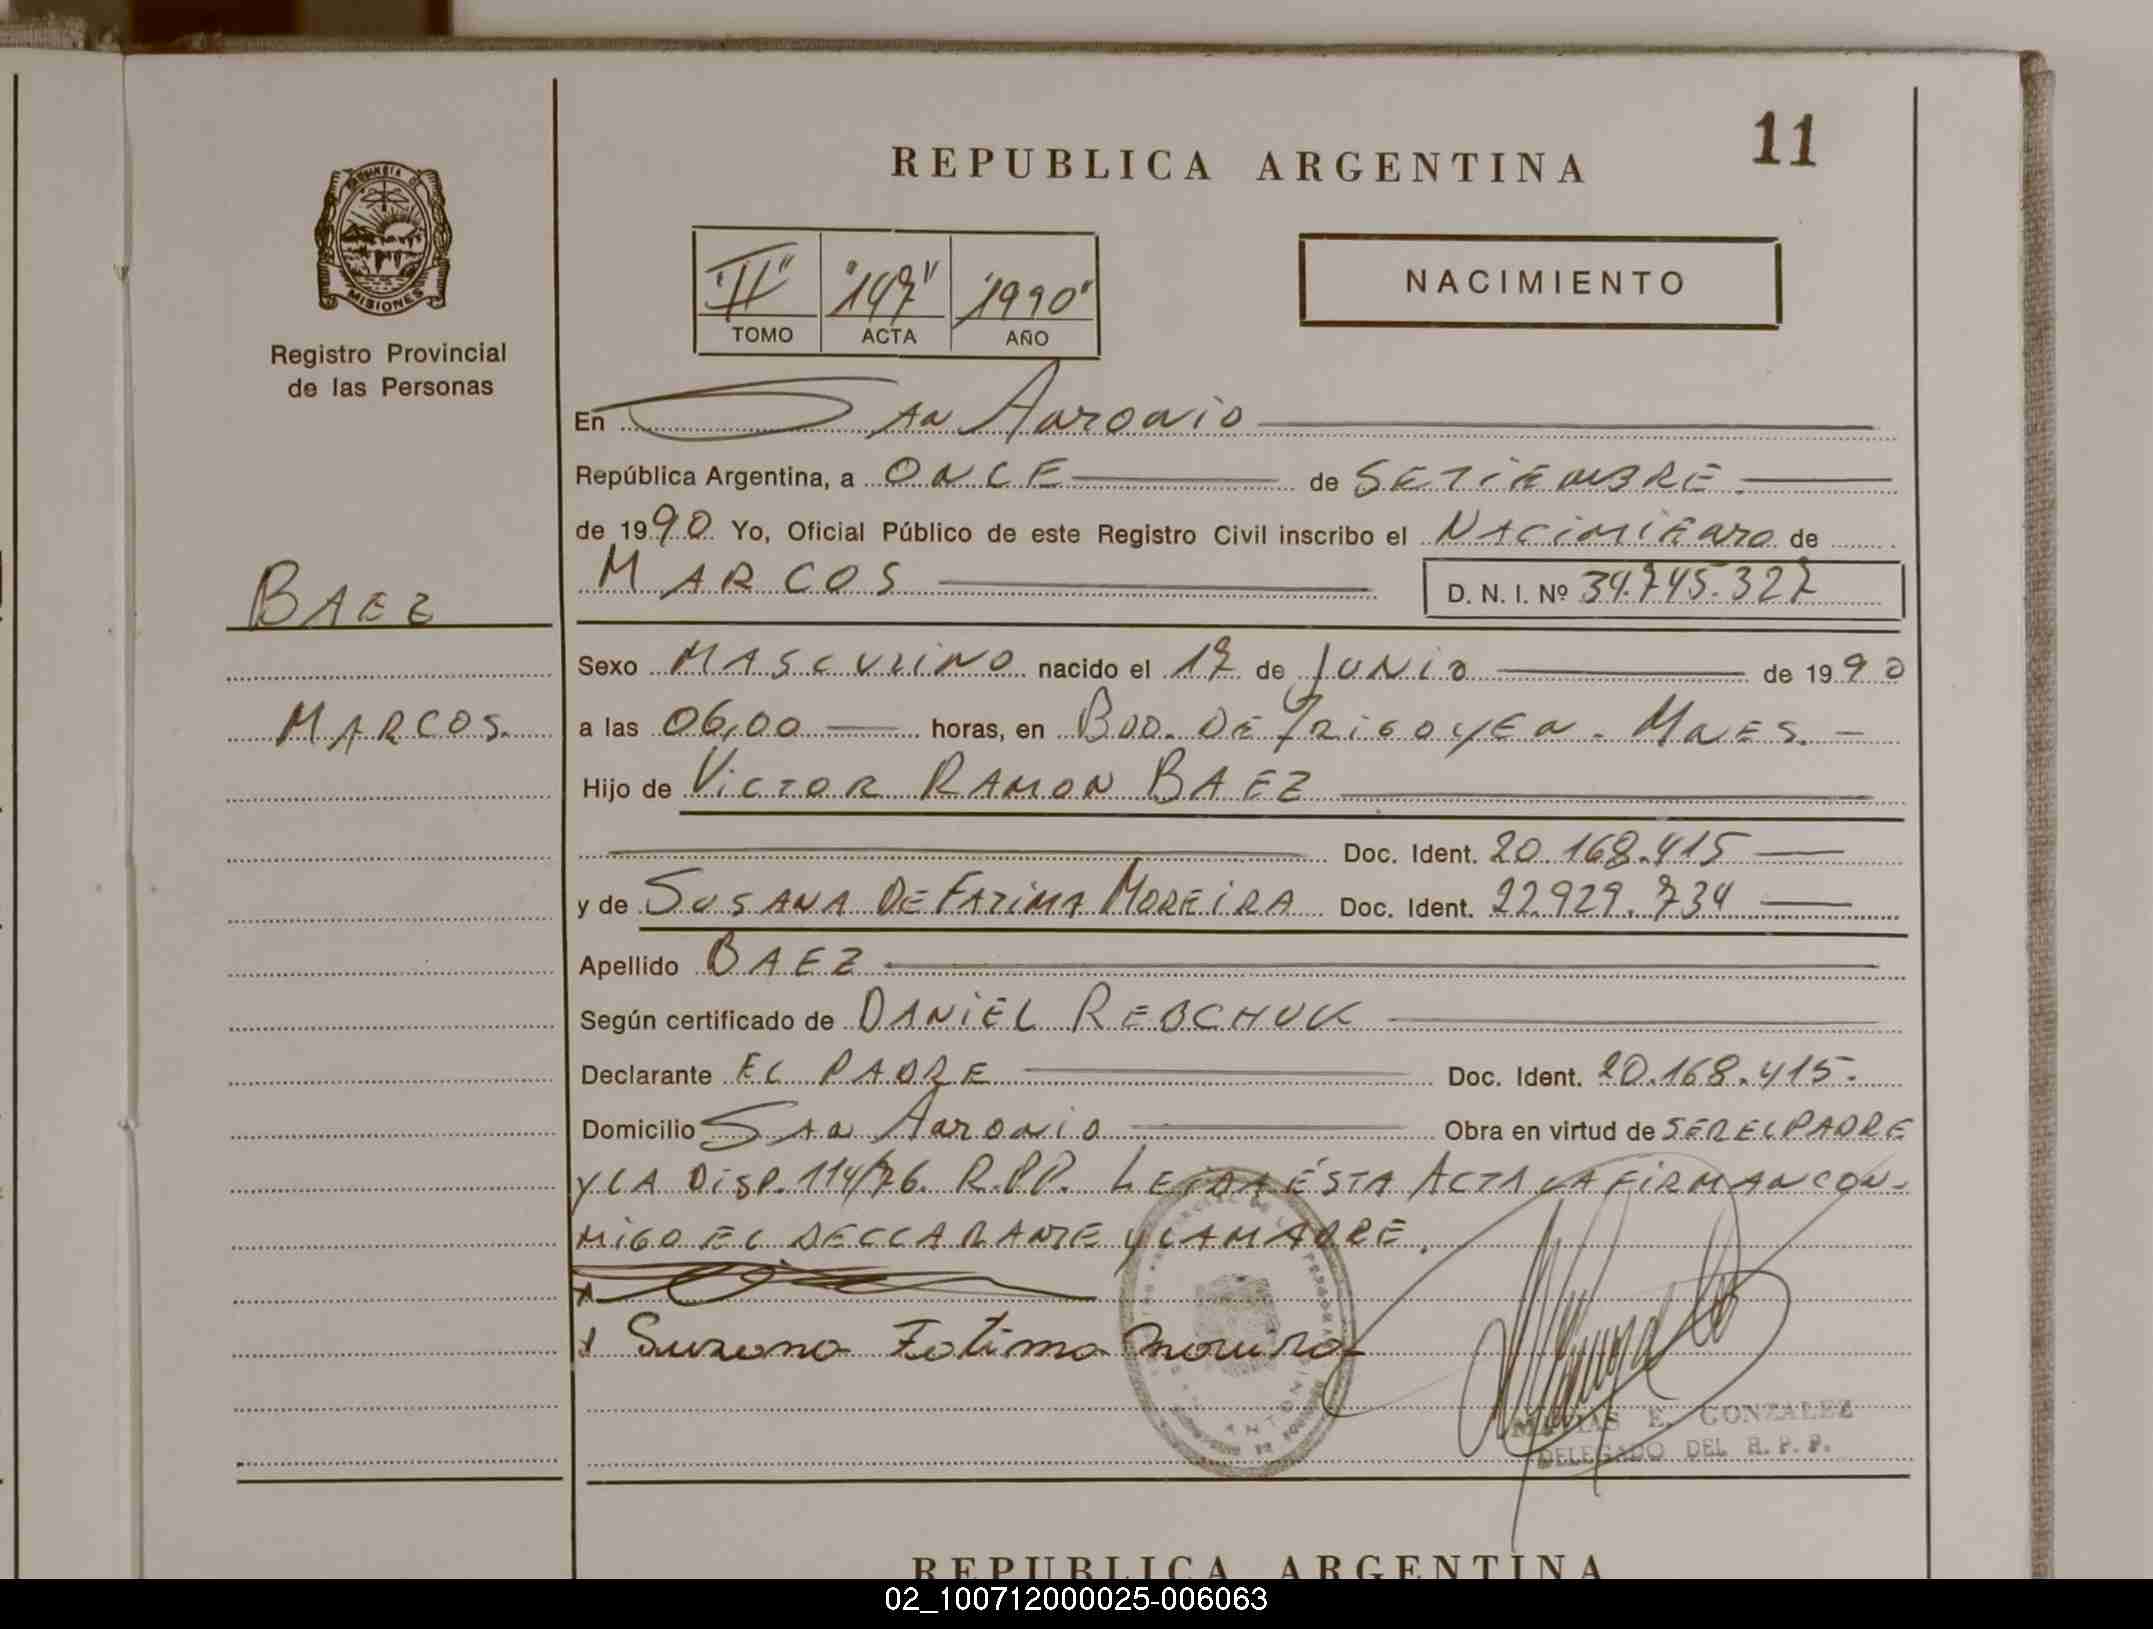 11
REPUBLICA ARGENTINA
NACIMIENTO
"II" "147" "1990"
TOMO ACTA AÑO
PROVINCIA DE
MISIONES
Registro Provincial
de las Personas
BAEZ
MARCOS.
En San Antonio
República Argentina, a ONCE de SETIEMBRE.
de 1990. Yo, Oficial Público de este Registro Civil inscribo el NACIMIENTO de
MARCOS D. N. I. Nº 34.745.327
Sexo MASCULINO nacido el 17 de JUNIO de 1990
a las 06,00 horas, en BDO. DE IRIGOYEN. MNES.
Hijo de VICTOR RAMON BAEZ
Doc. Ident. 20.168.415
y de SUSANA DE FATIMA MOREIRA Doc. Ident. 22.929.734
Apellido BAEZ
Según certificado de DANIEL REBCHUK
Declarante EL PADRE Doc. Ident. 20.168.415.
Domicilio San Antonio Obra en virtud de SER EL PADRE
Y LA DISP. 114/76. R.P.P. LEIDA ÉSTA ACTA LA FIRMAN CON-
MIGO EL DECLARANTE Y LA MADRE.
x
x Suzana Fatima Moreira
MATIAS E. GONZALEZ
DELEGADO DEL R. P. P.
REPUBLICA ARGENTINA
02_100712000025-006063